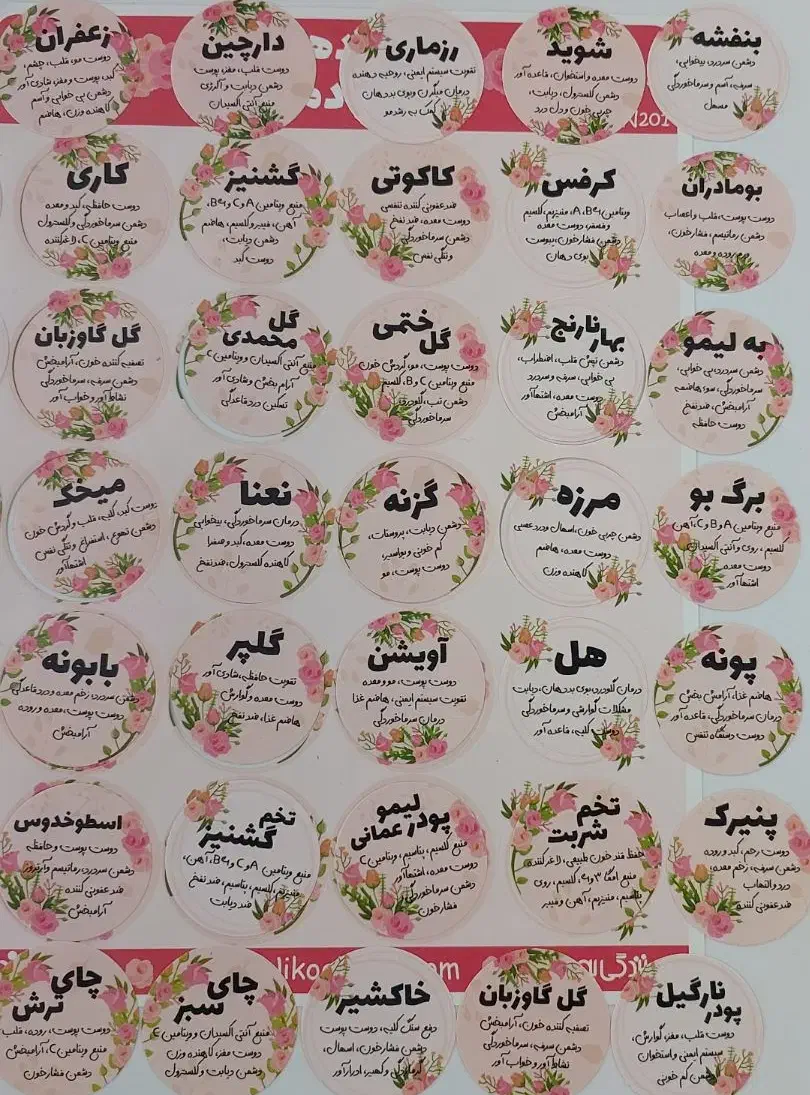 بنفشه
دوست سردرد، بیخوابی،
سرفه، آسم و سرماخوردگی
مسهل
شوید
دوست معده و استخوان، قاعده آور
دشمن کلسترول، دیابت،
چربی خون و دل درد
رزماری
تقویت سیستم ایمنی، روحیه دهنده
درمان میگرن و بوی بد دهان
کمک به رشد مو
دارچین
دوست قلب، مغز، پوست
دشمن دیابت و آلرژی
منبع آنتی اکسیدان
زعفران
دوست مو، قلب، چشم،
کبد، پوست و مغز، شادی آور
دشمن بی خوابی و آسم
کاهنده وزن، هاضم
N201
بومادران
دوست پوست، قلب و اعصاب
دشمن رماتیسم، فشار خون،
روده و معده
کرفس
ویتامین A،B6، منیزیم، کلسیم
و فسفر، دوست معده
دشمن فشار خون، یبوست
بوی دهان
کاکوتی
ضد عفونی کننده تنفسی
دوست معده، ضد نفخ
دشمن سرماخوردگی
و تنگی نفس
گشنیز
منبع ویتامین A و C و B6،
آهن، فیبر و کلسیم، هاضم
دشمن دیابت،
دوست کبد
کاری
دوست حافظه، کبد و معده
دشمن سرماخوردگی و کلسترول
منبع ویتامین C، لاغر کننده
به لیمو
دشمن سردرد، بی خوابی،
سرماخوردگی، سوء هاضمه
آرامبخش، ضد نفخ
دوست حافظه
بهار نارنج
دشمن تپش قلب، اضطراب،
بی خوابی، سرفه و سردرد
دوست معده، اشتها آور
آرامبخش
گل ختمی
دوست پوست، مو، گردش خون
منبع ویتامین C و B، کلسیم
دشمن تب، گلودرد،
سرماخوردگی
گل محمدی
منبع آنتی اکسیدان و ویتامین C
آرام بخش و شادی آور
تسکین درد قاعدگی
گل گاوزبان
تصفیه کننده خون، آرامبخش
دشمن سرفه، سرماخوردگی
نشاط آور و خواب آور
برگ بو
منبع ویتامین A و B و C، آهن
کلسیم، روی و آنتی اکسیدان
دوست معده
اشتها آور
مرزه
دشمن چربی خون، اسهال و درد عصبی
دوست معده، هاضم
کاهنده وزن
گزنه
دشمن دیابت، پروستات،
کم خونی و بواسیر،
دوست پوست، مو
نعنا
درمان سرماخوردگی، بیخوابی
دوست معده، کبد و صفرا
کاهنده کلسترول، ضد نفخ
میخک
دوست کبد، کلیه، قلب و گردش خون
دشمن تهوع، استفراغ و تنگی نفس
اشتها آور
پونه
هاضم غذا، آرامش بخش
درمان سرماخوردگی، قاعده آور
دوست دستگاه تنفس
هل
درمان گلودرد، بوی بد دهان، دیابت
مشکلات گوارشی و سرماخوردگی
دوست کلیه، قاعده آور
آویشن
دوست پوست، مو و معده
تقویت سیستم ایمنی، هاضم غذا
درمان سرماخوردگی
گلپر
تقویت حافظه، شادی آور
دوست معده و گوارش
هاضم غذا، ضد نفخ
بابونه
دشمن سردرد، زخم معده و درد قاعدگی
دوست پوست، معده و روده
آرامبخش
پنیرک
دوست رحم، کبد و روده
دشمن سرفه، زخم معده،
درد و التهاب
ضد عفونی کننده
تخم شربت
حفظ قند خون طبیعی، لاغر کننده
منبع امگا ۳ و ۶، کلسیم، روی
پتاسیم، منیزیم، آهن و فیبر
لیمو
پودر عمانی
منبع کلسیم، پتاسیم، ویتامین C
دوست معده، اشتها آور
دشمن سرماخوردگی،
فشار خون
تخم گشنیز
منبع ویتامین A و C و B6، آهن،
منیزیم، کلسیم، پتاسیم، ضد نفخ
ضد دیابت
اسطوخدوس
دوست پوست و حافظه
دشمن سردرد، رماتیسم و آرتروز
ضد عفونی کننده
آرامبخش
نارگیل
پودر
دوست قلب، مغز، گوارش،
سیستم ایمنی و استخوان
دشمن کم خونی
گل گاوزبان
تصفیه کننده خون، آرامبخش
دشمن سرفه، سرماخوردگی
نشاط آور و خواب آور
خاکشیر
دفع سنگ کلیه، دوست پوست
دشمن فشار خون، اسهال،
گرمازدگی و کهیر، ادرار آور
چای سبز
منبع آنتی اکسیدان و ویتامین C
دوست مغز، کاهنده وزن
دشمن دیابت و کلسترول
چای ترش
دوست پوست، روده، قلب
منبع ویتامین C، آرامبخش
دشمن فشار خون